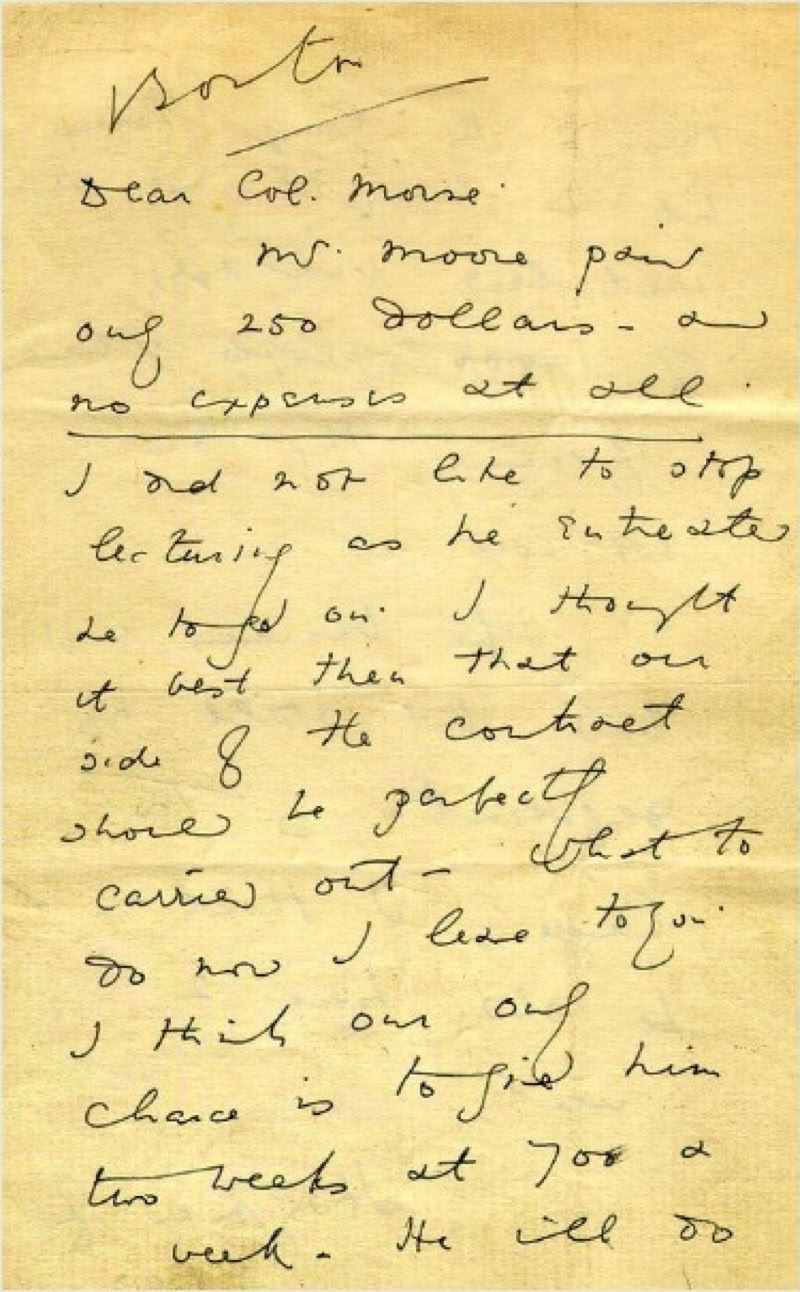 Boston
Dear Col. Morse.
Mr. Moore paid
only 250 dollars - and
no expenses at all.
I did not like to stop
lecturing as he entreated
me to go on. I thought
it best then that our
side of the contract
should be perfectly
carried out - What to
do now I leave to you.
I think our only
chance is to give him
two weeks at 700 a
week. He will do